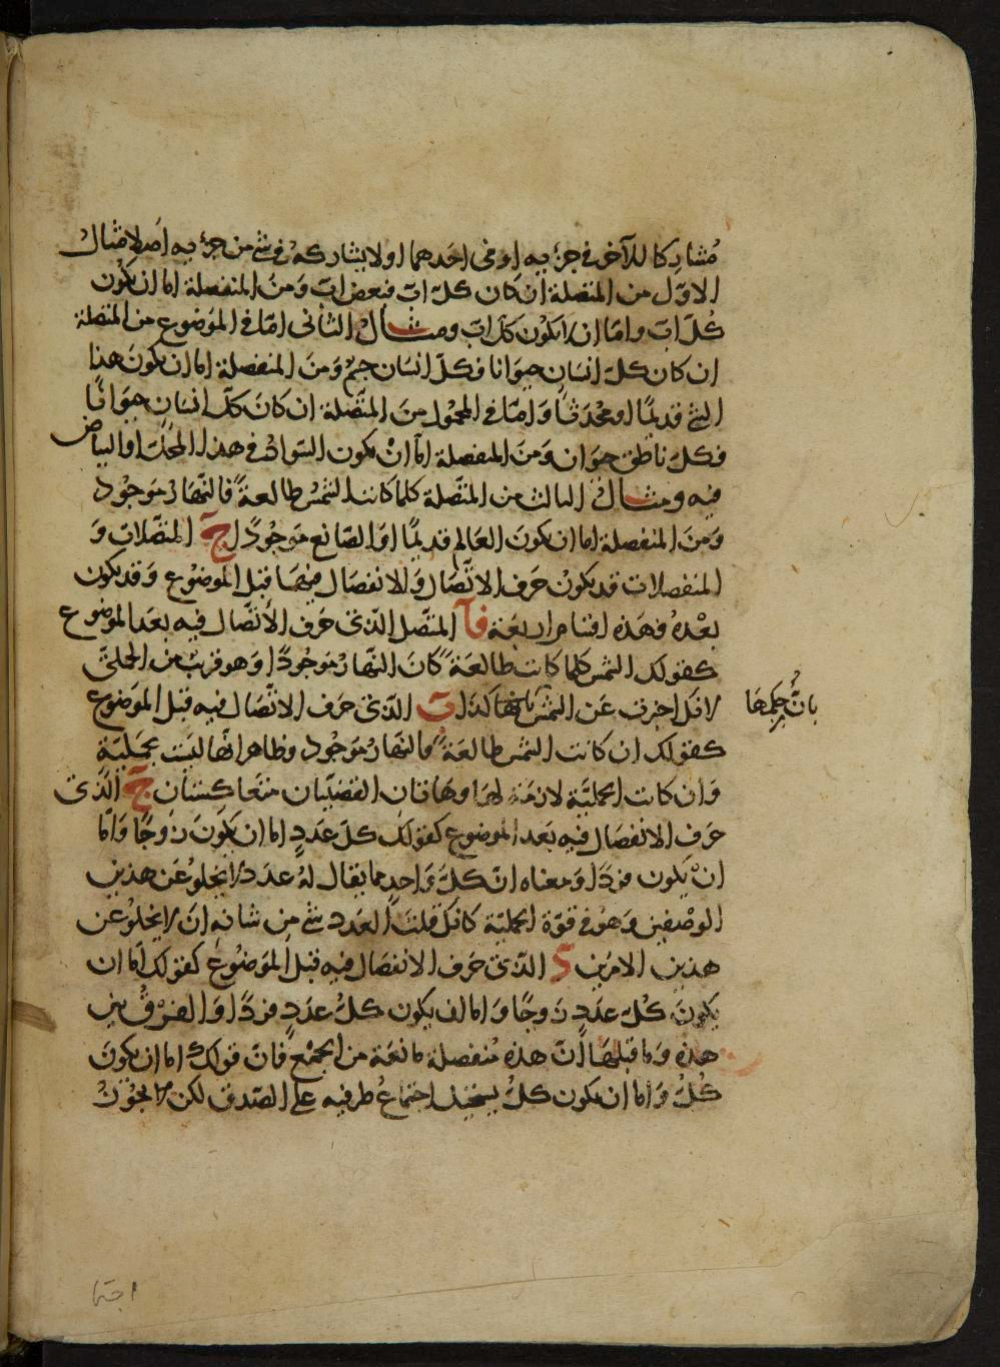 مُشاركا للآخر في جزئيه او في احدهما او لا يشاركه في شي من جزئيه اصلا مثال
الاوّل من المتصلة ان كان كلّ اب فبعض اب وَمنَ المنفصلة اما ان يكون
كُلّ اب واما ان لا يكون كلّ اب ومثال الثاني امّا في الموَضوع من المتصلة
ان كان كلّ انسانٍ حيَوَانا فكلّ انسَان جسم وَمنَ المنفصلة اما ان يكونَ هذا
الشي قديمًا او محُدَثاً وَامّا في المحمُول منَ المتَّصلة ان كانَ كلّ انسانٍ حيَوَانًا
فكلّ ناطق حيَوَان وَمنَ المنفصلة امّا انْ يكون السّوادُ في هذا المحلّ او البياض
فيه ومثال الثالث من المتَّصلة كلما كانت الشمسُ طالعةً فالنّهَارُ مَوجُود
وَمنَ المنفصلة اما ان يكونَ العَالم قديمًا اوَ الصّانع مَوجُودًا جَ المتصّلات وَ
المنفصلات قد يكونُ حَرف الاتّصَال وَالانفصَال فيهَا قبل الموضوُع وَقد يكون
بعْدهُ فهَذه اقسَام اربعَة فآ المتصّل الذّى حَرف الاتّصَال فيه بعَد الموَضوع
كقولك الشمس كلما كانت طالعَةً كانَ النّهَارُ مَوجُودًا وَهو قريبٌ من الحمَليّ
لانك اخبرت عَن الشمس بانّها كذا بَ الذّى حَرف الاتّصَال فيه قبل الموَضوع
بانّ حكمهَا
كقولك ان كانت الشمس طالعَةً فالنهَارُ مَوجُود وظاهر انهّا ليَست بحمَليَّةٍ
وَان كانت الحمليَّة لازمَة لهَا وهَاتان القضيّتان متعَاكستَانِ جَ الذّى
حَرف الانفصَال فيه بَعد الموضوع كقولك كلّ عَدَدٍ اما ان يكَونَ زَوجًا وَامّا
انْ يَكون فردًا وَمعناه انّ كلّ وَاحد مما يقال لهُ عدَد لا يخلوُ عَن هذين
الوصْفين وَهوُ في قوّة الحمليّة كانك قلتَ العَدد شي من شانه ان لا يخلُوَ عن
هذين الامرَين دَ الذّى حَرف الانفصَال فيه قبل الموَضوُع كقولك امّا ان
يكونَ كُلّ عدَدٍ زَوجًا وَاما ان يكون كلُّ عدَدٍ فردًا وَالفرقُ بين
هذه وَما قبلهَا انّ هذه مُنفصلة مانعَة من الجمَع فانّ قولك اما ان يكونَ
كُلّ وَاما ان يكون كلُّ يستحيل اجتماعُ طرفيه على الصّدق لكن لا يجوُزُ
اجتما